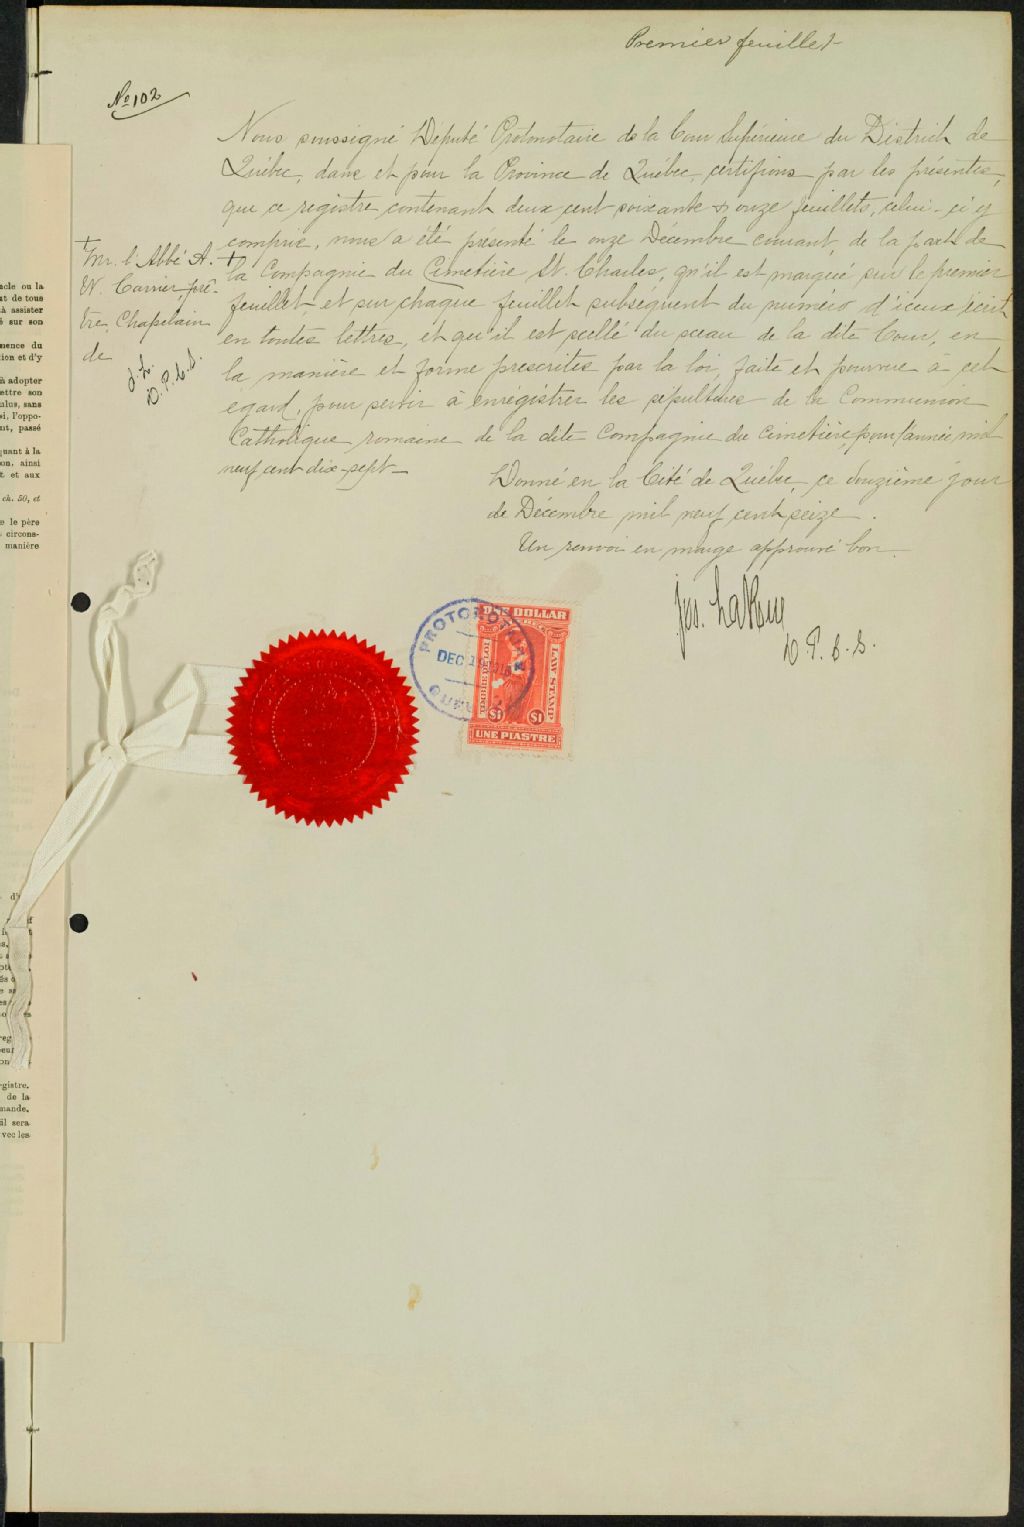 Premier feuillet
No 102
Nous soussigné Député Protonotaire de la Cour Supérieure du District de
Québec, dans et pour la Province de Québec, certifions par les présentes,
que ce registre contenant deux cent soixante & onze feuillets, celui-ci y
compris, nous a été présenté le onze Décembre courant, de la part de
+
la Compagnie du Cimetière St. Charles, qu'il est marqué sur le premier
feuillet et sur chaque feuillet subséquent du numéro d'iceux écrit
en toutes lettres, et qu'il est scellé du sceau de la dite Cour, en
la manière et forme prescrites par la loi, faite et pourvue à cet
egard, pour servir à enrégistrer les sépultures de la Communion
Catholique romaine de la dite Compagnie du cimetière, pour l'année mil
neuf cent dix-sept
+
Mr. l'Abbé A.
N. Carrier, prê-
tre, Chapelain
de
J. L.
D. P. C. S.
Donné en la Cité de Québec, ce douzième jour
de Décembre mil neuf cent seize.
Un renvoi en marge approuvé bon.
Jos. LaRue
D. P. C. S.
PROTONOTAIRE
DEC
ONE DOLLAR
LAW STAMP
TIMBRE DE LOI
$1 $1
UNE PIASTRE
acle ou la
nt de tous
à assister
é sur son
mence du
tion et d'y
à adopter
ettre son
ulus, sans
si, l'oppo-
nt, passé
quant à la
on, ainsi
t et aux
ch. 50, et
e le père
circons-
manière
gistre.
de la
mande.
il sera
vec les